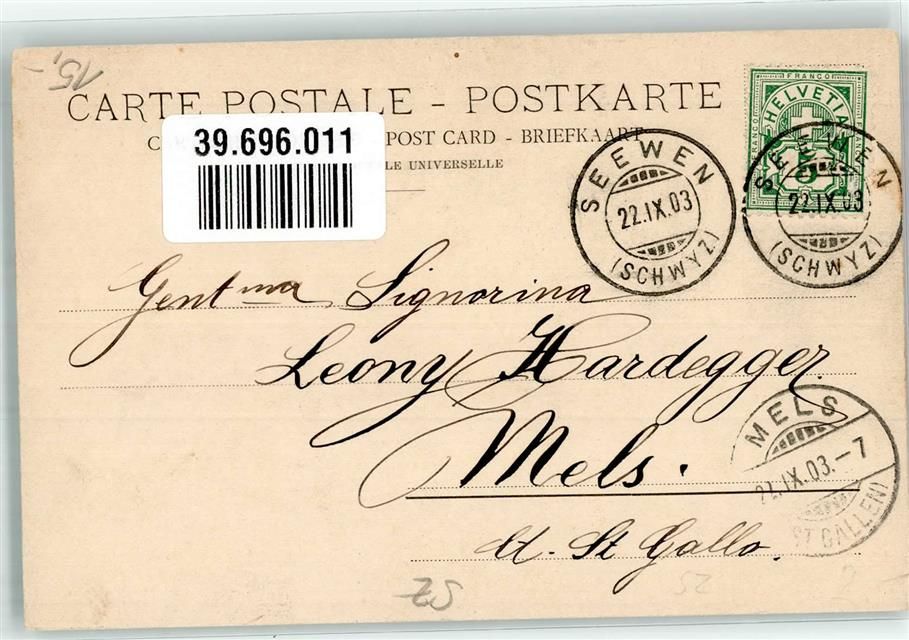 15,-
CARTE POSTALE - POSTKARTE
POST CARD - BRIEFKAART
UNIVERSELLE
39.696.011
FRANCO
HELVETIA
SEEWEN
22.IX.03
(SCHWYZ)
SEEWEN
22.IX.03
(SCHWYZ)
Gent ma Signorina
Leony Hardegger.
Mels.
MELS
22.IX.03.-7
(ST GALLEN)
Ct. St Gallo.